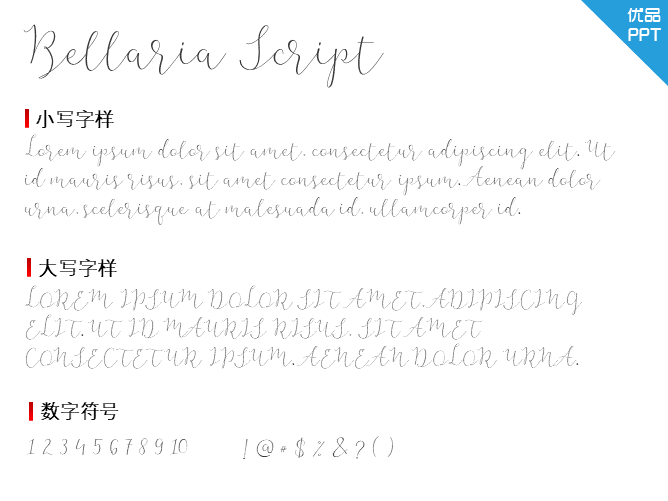 优品
PPT
Bellaria Script
小写字样
Lorem ipsum dolor sit amet, consectetur adipiscing elit. Ut
id mauris risus, sit amet consectetur ipsum. Aenean dolor
urna, scelerisque at malesuada id, ullamcorper id.
大写字样
LOREM IPSUM DOLOR SIT AMET. ADIPISCING
ELIT. UT ID MAURIS RISUS. SIT AMET
CONSECTETUR IPSUM. AENEAN DOLOR URNA.
数字符号
1 2 3 4 5 6 7 8 9 10 ! @ * $ % & ? ( )